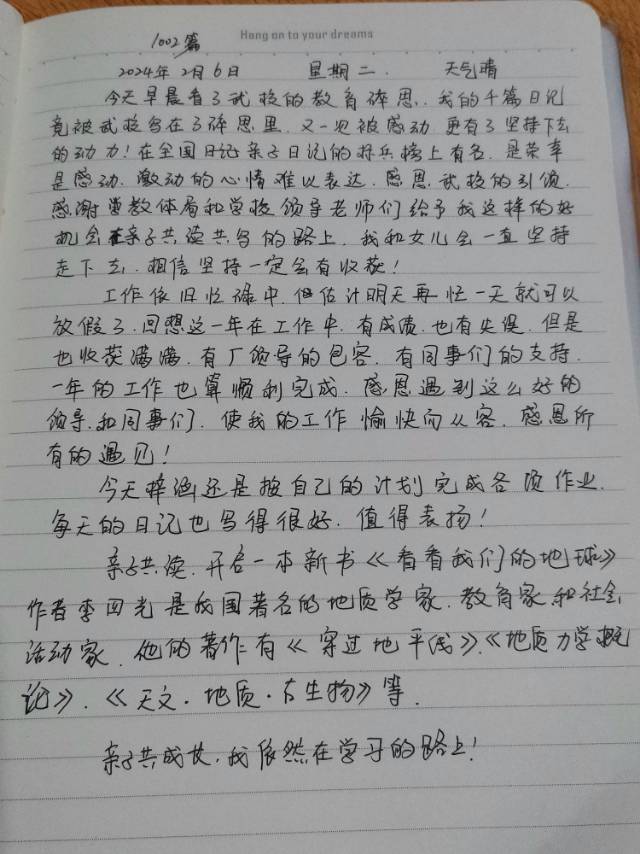 Hang on to your dreams
1002篇
2024年2月6日 星期二. 天气晴
今天早晨看了武校的教育碎思, 我的千篇日记
竟被武校写在了碎思里, 又一次被感动, 更有了坚持下去
的动力！在全国日记亲子日记的标兵榜上有名, 是荣幸
是感动, 激动的心情难以表达, 感恩武校的引领,
感谢教体局和学校领导老师们给予我这样的好
机会在亲子共读共写的路上, 我和女儿会一直坚持
走下去, 相信坚持一定会有收获！
工作依旧忙碌中, 但估计明天再忙一天就可以
放假了, 回想这一年在工作中, 有成绩, 也有失误, 但是
也收获满满, 有厂领导的包容, 有同事们的支持,
一年的工作也算顺利完成, 感恩遇到这么好的
领导和同事们, 使我的工作愉快而从容, 感恩所
有的遇见！
今天梓涵还是按自己的计划完成各项作业,
每天的日记也写得很好, 值得表扬！
亲子共读, 开启一本新书《看看我们的地球》
作者李四光是我国著名的地质学家, 教育家和社会
活动家, 他的著作有《穿过地平线》、《地质力学概
论》、《天文·地质·古生物》等.
亲子共成长, 我依然在学习的路上！